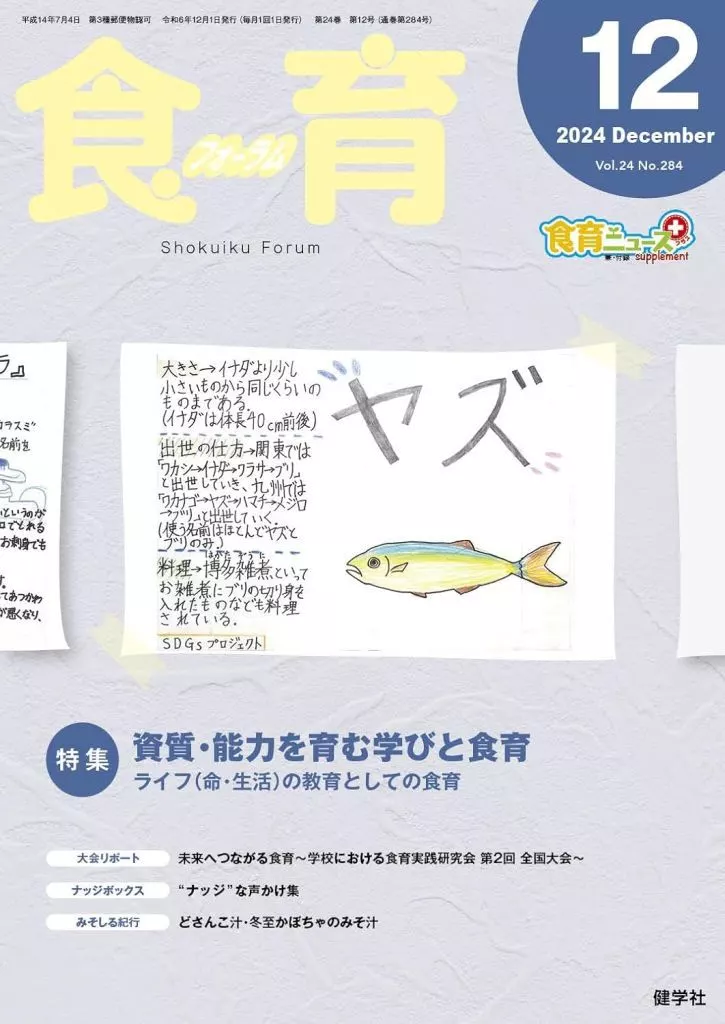 平成14年7月4日 第3種郵便物認可 令和6年12月1日発行(毎月1回1日発行) 第24巻 第12号(通巻第284号)
12
2024 December
Vol.24 No.284
食育
フォーラム
Shokuiku Forum
食育ニュース
プラス
supplement
ラ』
カラスミ"
名前を
というのが
ロでとれる
お刺身でも
す。
てあつかわ
が悪くなり、
大きさ→イナダより少し
小さいものから同じくらいの
ものまである.
(イナダは体長40cm前後)
出世の仕方→関東では
「ワカシ→イナダ→ワラサ→ブリ」
と出世していき、九州では
「ワカナゴ→ヤズ→ハマチ→メジロ
→ブリ」と出世していく.
(使う名前はほとんどヤズと
ブリのみ.)
料理→博多雑煮といって
お雑煮にブリの切り身を
入れたものなども料理
されている.
SDGsプロジェクト
ヤズ
特集
資質・能力を育む学びと食育
ライフ(命・生活)の教育としての食育
大会リポート 未来へつながる食育～学校における食育実践研究会 第2回 全国大会～
ナッジボックス “ナッジ”な声かけ集
みそしる紀行 どさんこ汁・冬至かぼちゃのみそ汁
健学社